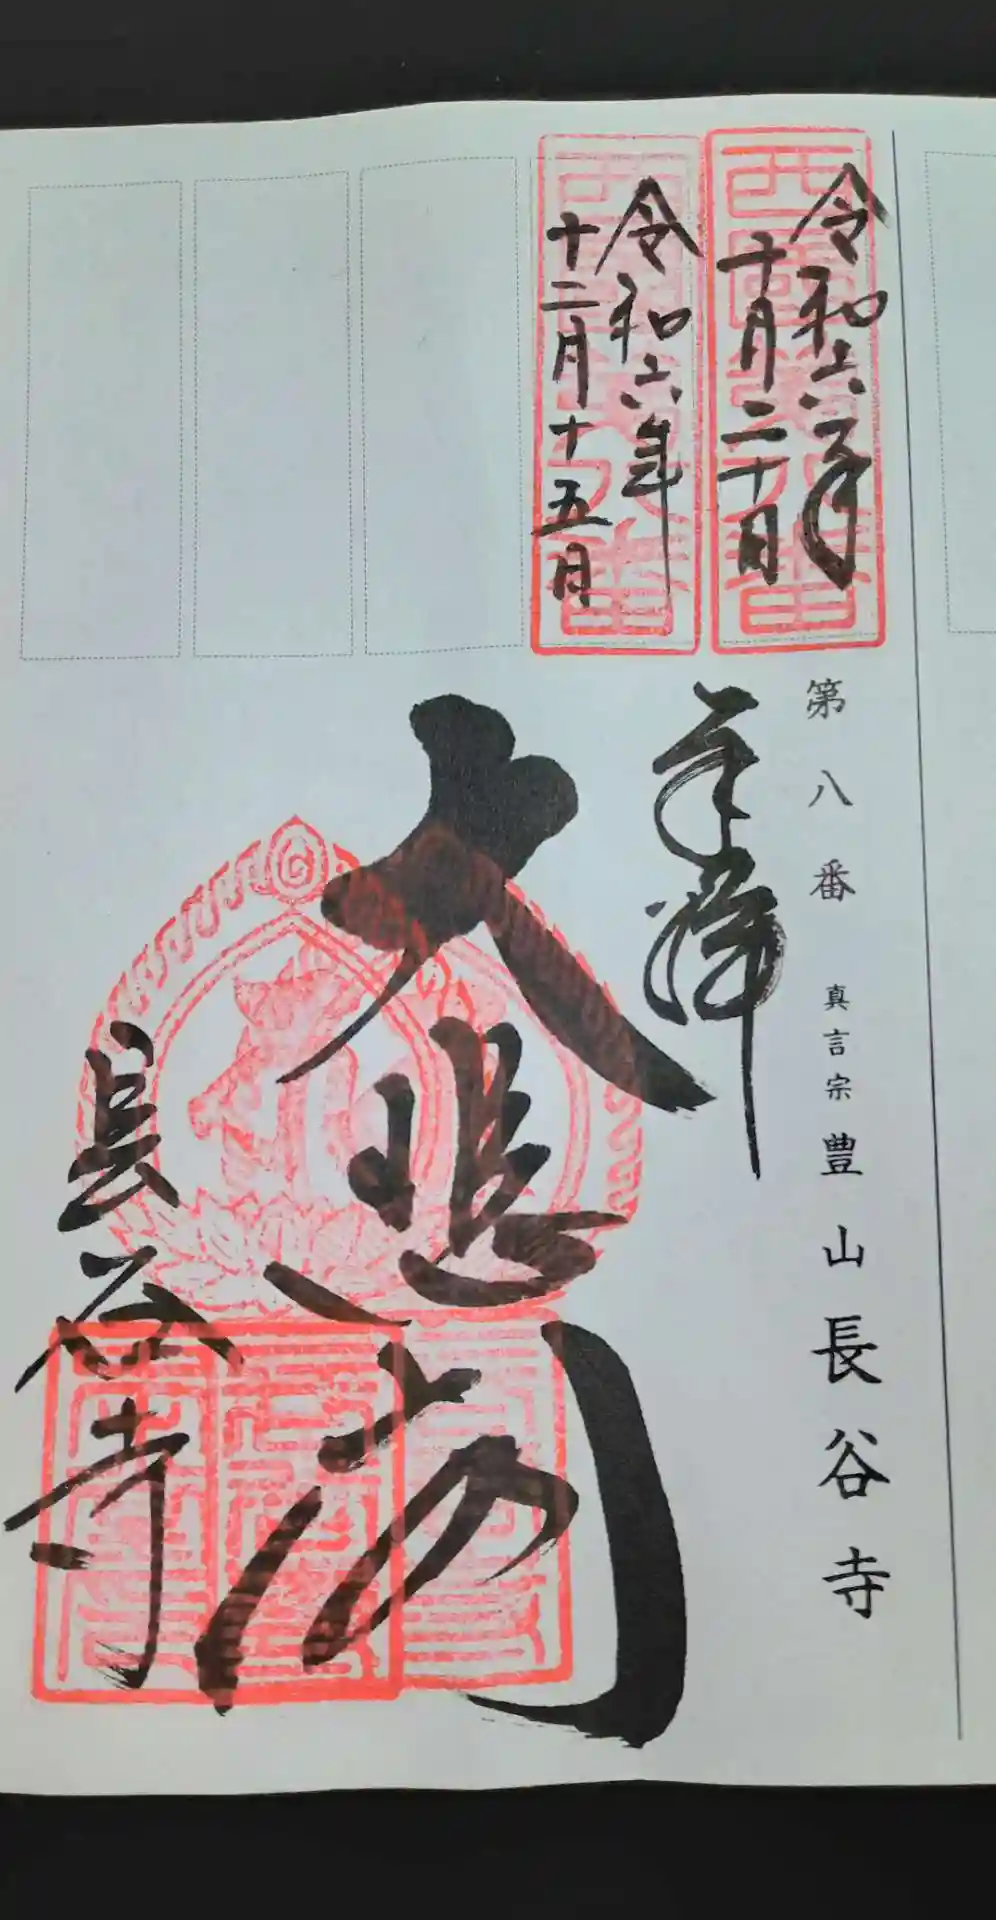 第八番 真言宗 豊山 長谷寺
令和六年
十月二十日
令和六年
十二月十五日
奉拝
大悲閣
長谷寺